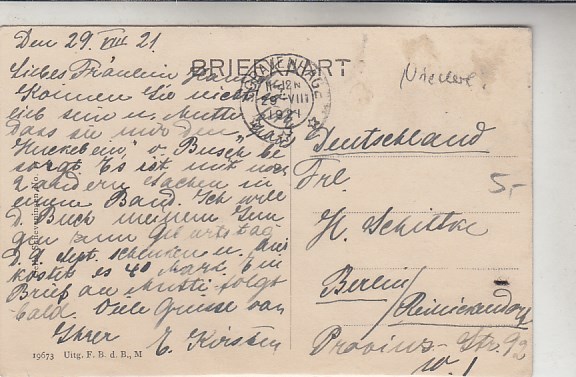 Den 29. VIII 21.
BRIEFKAART
Liebes Fräulein
Können Sie nicht
lieb sein u. Mutti
dass sie mir den "Hans
Huckebein" v. Busch be
sorgt. Es ist mit noch
2 andern Sachen in
einem Band. Ich will
d. Buch meinem Jun
gen zum Geburtstag
Sept. schenken u.
kostet es 40 Mark. Ein
Brief an Mutti folgt
bald. Viele Grüsse von
Ihrer E. Kirsten
'S GRAVENHAGE
11-12 N
29 VIII
1921
Niederl.
Deutschland
Frl.
5,-
H. Schittke
Berlin/
Reinickendorf
Provinz-Str. 92
19673 Uitg. F. B. d. B., M